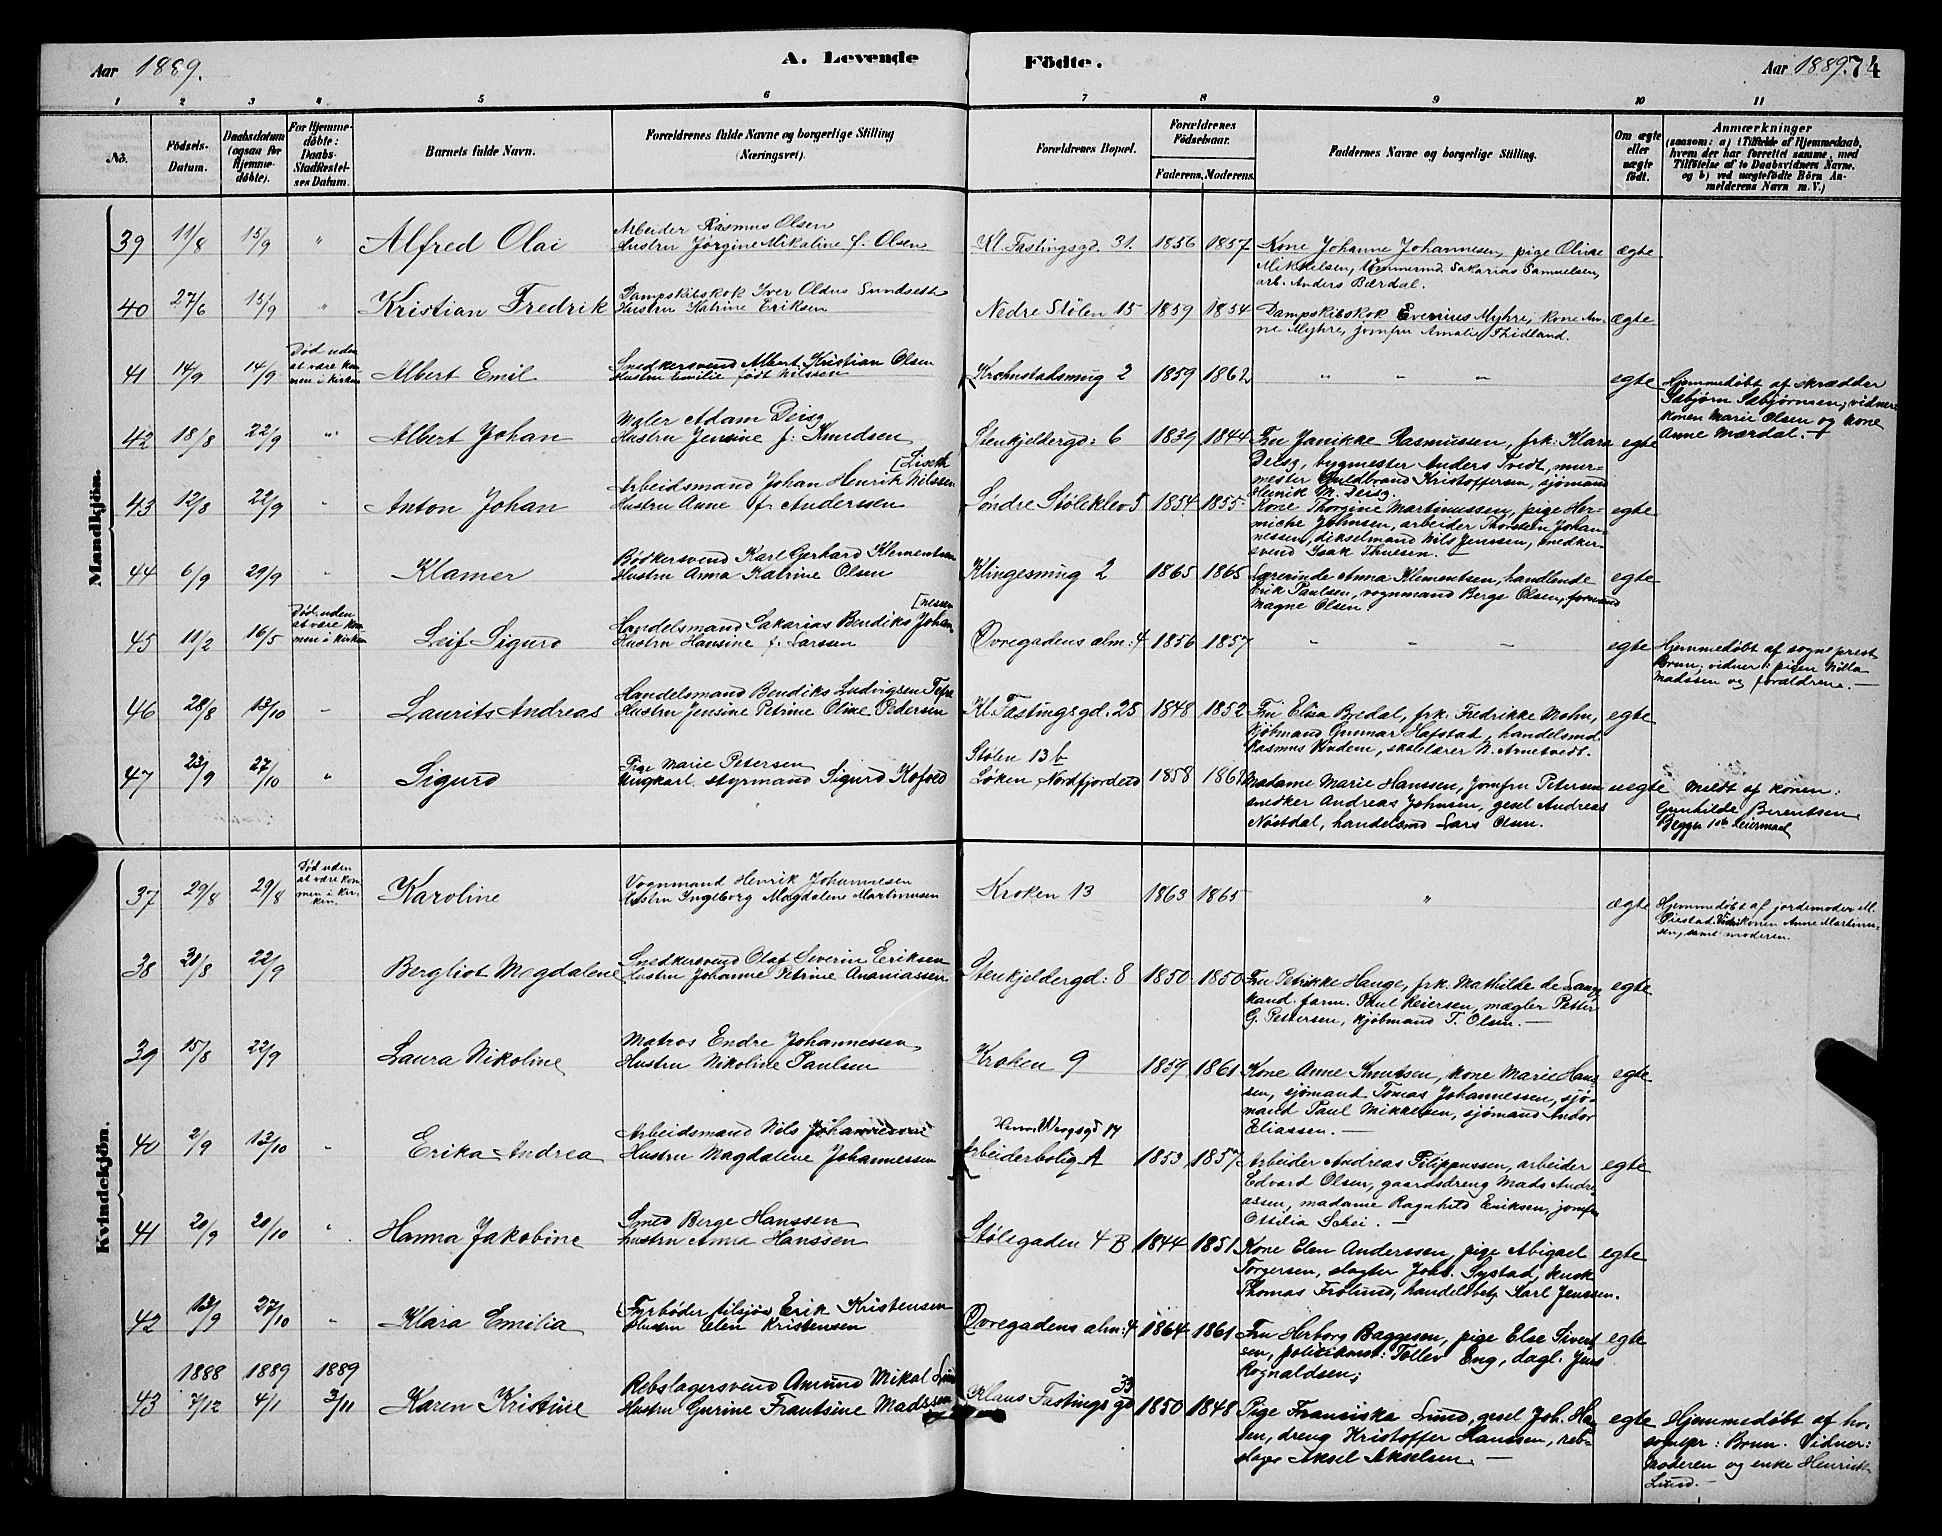 Aar 1889.
A. Levende
Födte.
Aar 1889. 74
1 2 3 4 5 6 7 8 9 10 11
No.
Födsels-Datum.
Daabsdatum (ogsaa for Hjemme-döbte).
For Hjemme-döbte: Daabs-Stadfæstel-ses Datum.
Barnets fulde Navn.
Forældrenes fulde Navne og borgerlige Stilling (Næringsvei).
Forældrenes Bopæl.
Forældrenes Födselsaar.
Faderens. Moderens.
Faddernes Navne og borgerlige Stilling.
Om ægte eller uægte födt.
Anmærkninger
(saasom: a) i Tilfælde af Hjemmedaab, hvem der har forrettet samme, med Tilföielse af to Daabsvidners Navne, og b) ved uægtefödte Börn An-melderens Navn m. V.)
Mandkjön.
39 11/8 15/9 " Alfred Olai
Arbeider Rasmus Olsen
Hustru Jørgine Mikaline f. Olsen
Kl. Fastingsgd. 31. 1856 1857
Kone Johanne Johannesen, pige Oline
Mikkelsen, tømmermd. Sakarias Samuelsen,
arb. Anders Bærdal.
ægte
40 27/6 15/9 " Kristian Fredrik
Dampskibskok Iver Oldus Sundseth
Hustru Katrine Eriksen
Nedre Stølen 15 1859 1854
Dampskibskok Evenius Myhre, kone An-
ne Myhre, jomfru Amalie Thidland.
ægte
41 14/9 14/9
Död uden
at være kom-
men i kirken
Albert Emil
Snedkersvend Albert Kristian Olsen
Hustru Emilie født Nilssen
Krohnstadsmug 2 1859 1862 " " "
egte
Hjemmedøbt af skrædder
Asbjørn Asbjørnsen; vidner:
konen Marie Olsen og kone
Anne Mærdal.
42 18/8 22/9 " Albert Johan
Maler Adam Deisz
Hustru Jensine f: Knudsen
Stenkjeldergd: 6 1839 1844
Fru Janikke Rasmussen, frk: Klara
Deisz, bygmester Anders Tvedt, mur-
mester Guldbrand Kristoffersen, sjömand
Henrik M. Deisz.
egte
43 12/8 22/9 " Anton Johan
[Liseth
Arbeidsmand Johan Henrik Nilssen
Hustru Anne f. Anderssen
Søndre Støleklev 5 1854 1855
Kone Thorgine Martinussen, pige Her-
miche Johnsen, arbeider Thorstein Johan-
nessen, dikselmand Nils Jenssen, snedker-
svend Isak Thuesen.
egte
44 6/9 29/9 " Klamer
Bödkersvend Karl Gerhard Klementsen
Hustru Anna Katrine Olsen
Klingesmug 2 1865 1865
Lærerinde Anna Klementsen, handlende
Erik Paulsen, vognmand Berge Olsen, formand
Magne Olsen
egte
45 11/2 16/5
Död uden
at være kom-
men i kirken
Leif Sigurd
[nessen
Handelsmand Sakarias Bendiks Johan-
Hustru Hansine f. Larssen
Øvregadens alm: 4 1856 1857 " " "
egte
Hjemmedøbt af sogneprest
Brun; vidner: pigen Milla
Madssen og forældrene.
46 28/8 13/10 " Laurits Andreas
Handelsmand Bendiks Ludvigsen
Hustru Jensine Petrine Oline Pedersen
Kl. Fastingsgd. 25 1848 1852
Fru Elisa Bredal, frk. Fredrikke Mohn,
kjöbmand Gunnar Hafstad, handelsmd.
Rasmus Hindem, skolelærer N. Arnetvedt.
egte
47 23/9 27/10 " Sigurd
Pige Marie Petersen
Ungkarl styrmand Sigurd Kofoed
Stølen 13 b
Løken, Nordfjordeid 1858 1862
Madame Marie Hanssen, jomfru Petersen
snedker Andreas Johnsen, gesel Andreas
Nøstdal, handelsmd Lars Olsen.
uegte
Meldt af konen:
Gunhilde Berentsen
Begges 1ste leiermaal
Kvindekjön.
37 29/8 29/8
Död uden
at være kom-
men i kir-
ken.
Karoline
Vognmand Henrik Johannesen
Hustru Ingeborg Magdalene Martinusen
Kroken 13 1863 1865 "
ægte
Hjemmedøbt af jordemoder M.
Piestad. Vidn: konen Anne Martinu-
sen, samt moderen.
38 31/8 22/9 Bergliot Magdalene
Snedkersvend Olaf Severin Eriksen
Hustru Johanne Petrine Ananiassen
Stenkjeldergd: 8 1850 1850
Fru Petrikke Hauge, frk. Mathilde de Lange
kand. farm. Paul Reiersen, mægler Petter
G. Pettersen, kjöbmand T. Olsen.
egte
39 15/8 22/9 Laura Nikoline
Matros Endre Johannessen
Hustru Nikoline Paulsen
Kroken 9 1859 1861
Kone Anne Knutsen, kone Marie Han-
sen, sjömand Tomas Johannessen, sjö-
mand Paul Mikkelsen, sjömand Andor
Eliassen.
egte
40 2/9 13/10 " Erika Andrea
Arbeidsmand Nils Johannessen
Hustru Magdalene Johannessen
Arbeiderbolig A 1853 1857
Arbeider Andreas Filippussen, arbeider
Edvard Olsen, gaardsdreng Mads Andre-
assen, madame Ragnhild Eriksen, jomfru
Ottilia Schei.
egte
41 20/9 20/10 " Hanna Jakobine
Smed Berge Hanssen
Hustru Anna Hanssen
Stølegaden 4 B 1844 1851
Kone Elen Anderssen, pige Abigael
Torgersen, slagter Johs. Systad, kusk
Thomas Frølund, handelsbetj Karl Jenssen.
egte
42 13/9 27/10 " Klara Emilia
Fyrbøder tilsjös Erik Kristensen
Hustru Elen Kristensen
Øvregadens alm: 4 1864 1861
Fru Herborg Baggesen, pige Else Sivert-
sen, politikonst: Tollev Eng, dagl. Jens
Rognaldsen;
egte
1888 1889 1889
43 7/12 4/1 3/11 Karen Kristine
Rebslagersvend Amund Mikal Lund
Hustru Gurine Frantsine Madssen
Klaus Fastings gd 33 1850 1848
Pige Franciska Lund, gesel Joh. Han-
sen, dreng Kristoffer Hanssen, reb-
slager Aksel Akselsen.
egte
Hjemmedøbt af hr.
sognepr: Brun. Vidner:
Moderen og enke Henriette
Lund.